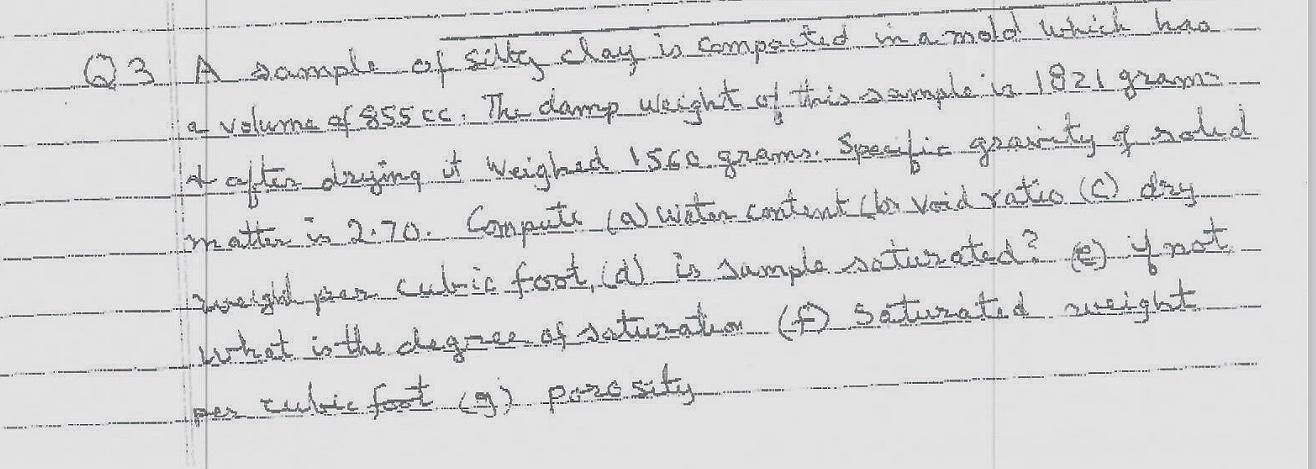 Q3 A sample of silty clay is compacted in a mold which has
a volume of 855 cc. The damp weight of this sample is 1821 grams
& after drying it weighed 1560 grams. Specific gravity of solid
matter is 2.70. Compute (a) water content (b) void ratio (c) dry
weight per cubic foot, (d) is sample saturated? (e) if not
what is the degree of saturation (f) saturated weight
per cubic foot (g) porosity